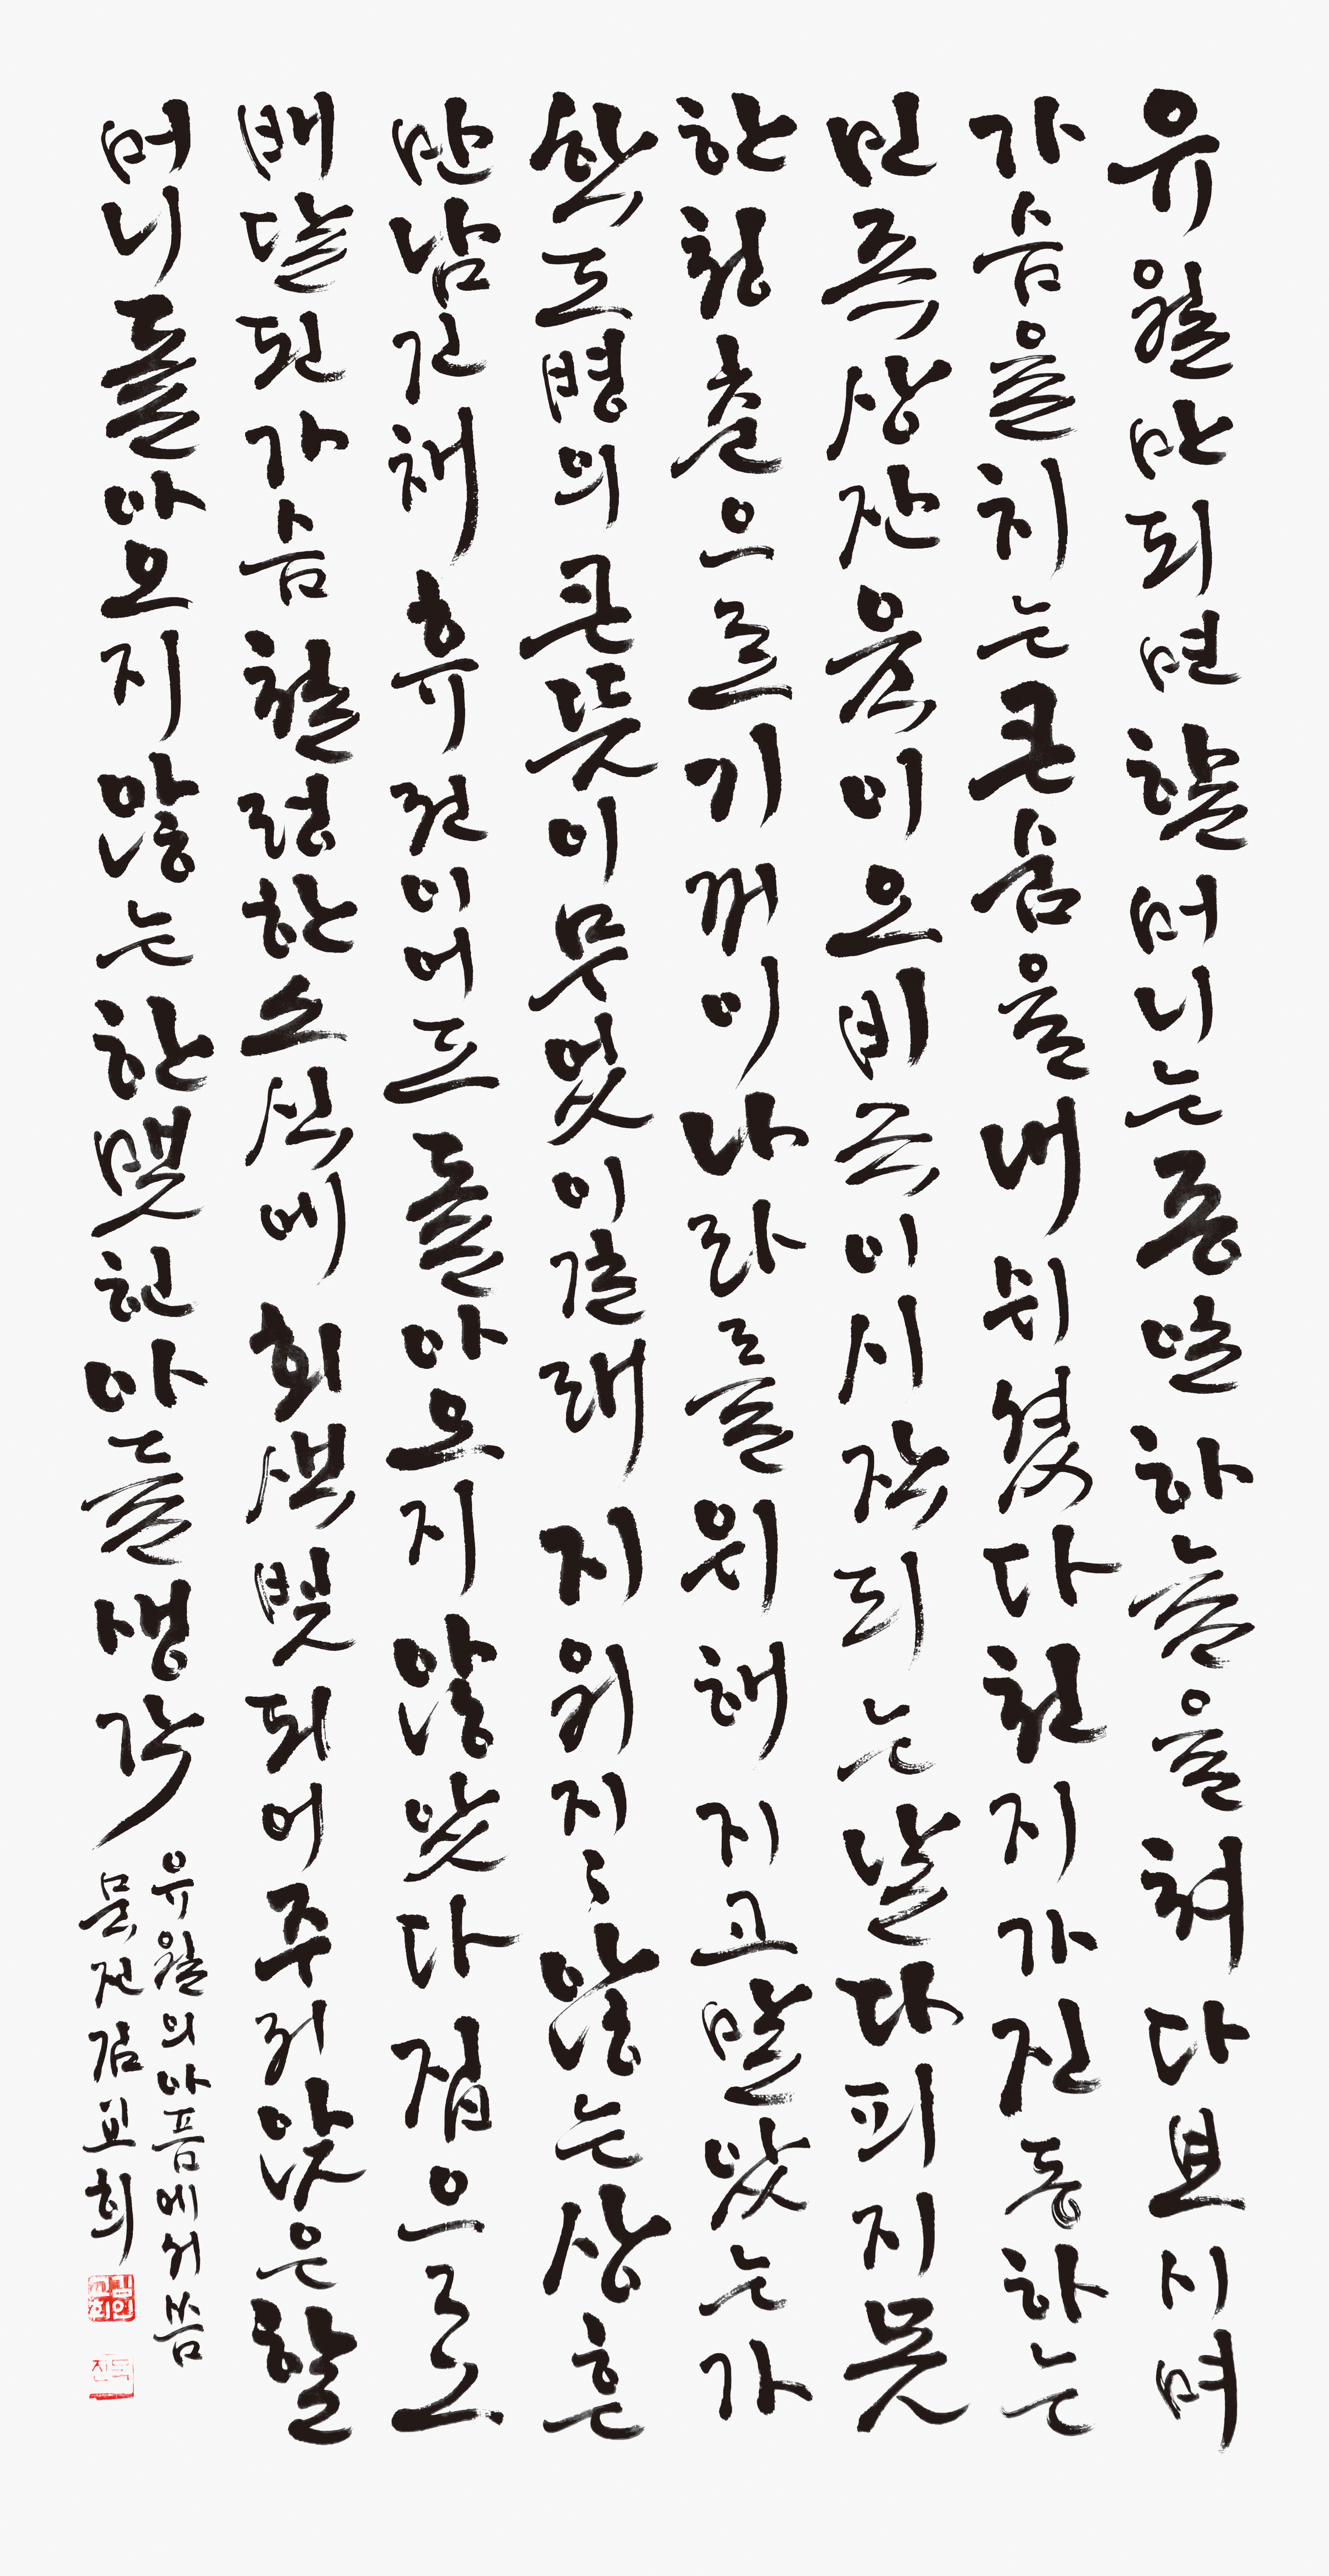 유월만되면할머니는종일하늘을쳐다보시며
가슴을치는큰숨을내쉬셨다천지가진동하는
민족상잔육이오비극이시작되는날다피지못
한청춘으로기꺼이나라를위해지고말았는가
학도병의큰뜻이무엇이길래지워지지않는상흔
만남긴채휴전이어도돌아오지않았다집으로
배달된가슴철렁한소식에회색빛되어주저앉은할
머니돌아오지않는한맺힌아들생각
유월의아픔에서씀
묵전김교희
김교희인